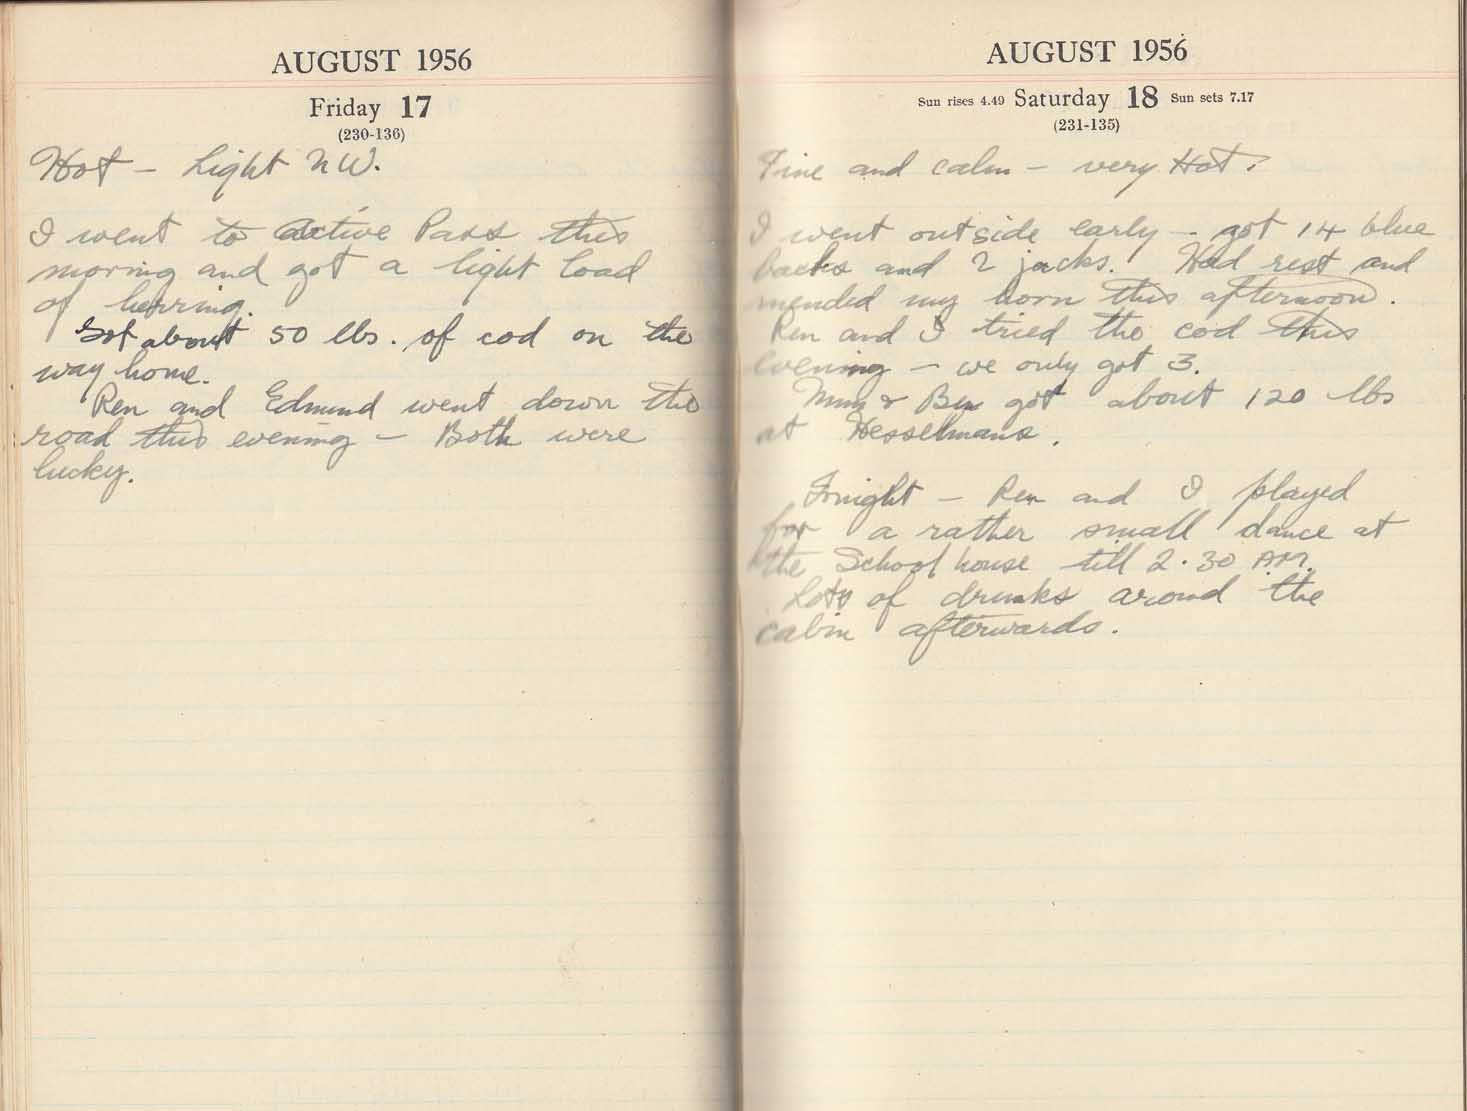 AUGUST 1956
Friday 17
(230-136)
Hot - Light NW.
I went to Active Pass this
morning and got a light load
of herring.
Got about 50 lbs. of cod on the
way home.
Ren and Edmund went down the
road this evening - Both were
lucky.
AUGUST 1956
Sun rises 4.49 Saturday 18 Sun sets 7.17
(231-135)
Fine and calm - very Hot.
I went outside early - got 14 blue
backs and 2 jacks. Had rest and
mended my horn this afternoon.
Ren and I tried the cod this
evening - we only got 3.
& got about 120 lbs
at Hesselmans.
Tonight - Ren and I played
for a rather small dance at
the School house till 2.30 AM.
Lots of drunks around the
cabin afterwards.